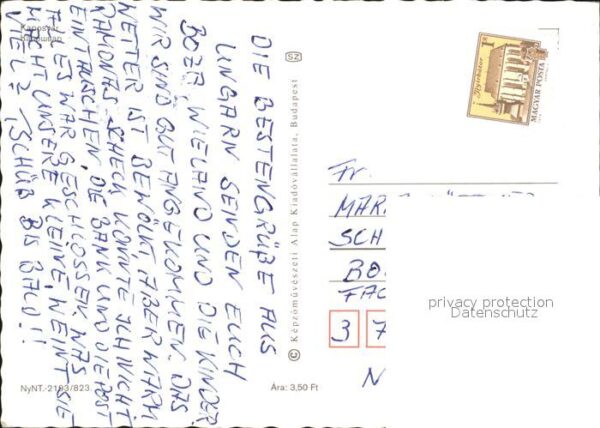 Kaposvár
DIE BESTEN GRÜßE AUS
UNGARN SENDEN EUCH
WIELAND UND DIE KINDER.
WIR SIND GUT ANGEKOMMEN. DAS
WETTER IST BEWÖLKT, ABER WARM
SCHECK KONNTE ICH NICHT
EINTAUSCHEN, DIE BANK UND DIE POST
ALLES WAR GESCHLOSSEN. WAS
MACHT UNSERE KLEINE, WEINT SIE
VIEL? TSCHÜß BIS BALD!!
NyNT.-2193/823.
Ára: 3,50 Ft
© Képzőművészeti Alap Kiadóvállalata, Budapest
SZ
1Ft
Nyírbátor
MAGYAR POSTA
Fr.
MAR
SCH
BO
FAC
3 7
N
privacy protection
Datenschutz